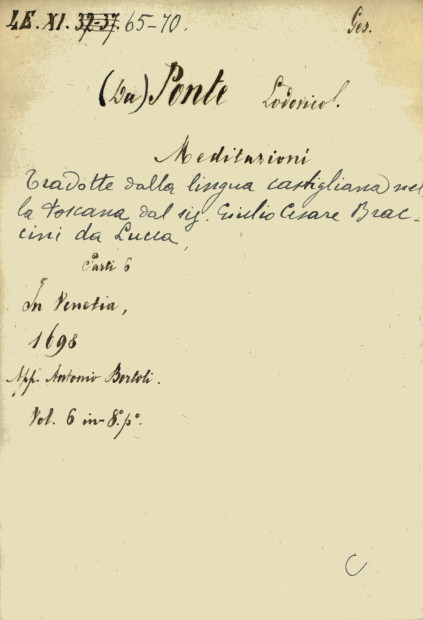 LE. XI. 32-37. 65-70. Ges.
(Da) Ponte Lodovico.
Meditazioni
Tradotte dalla lingua castigliana nel
la toscana dal sig. Giulio Cesare Brac-
cini da Lucca,
Parti 6
In Venetia,
1698
App. Antonio Bortoli.
Vol. 6 in-8.° p.°
C